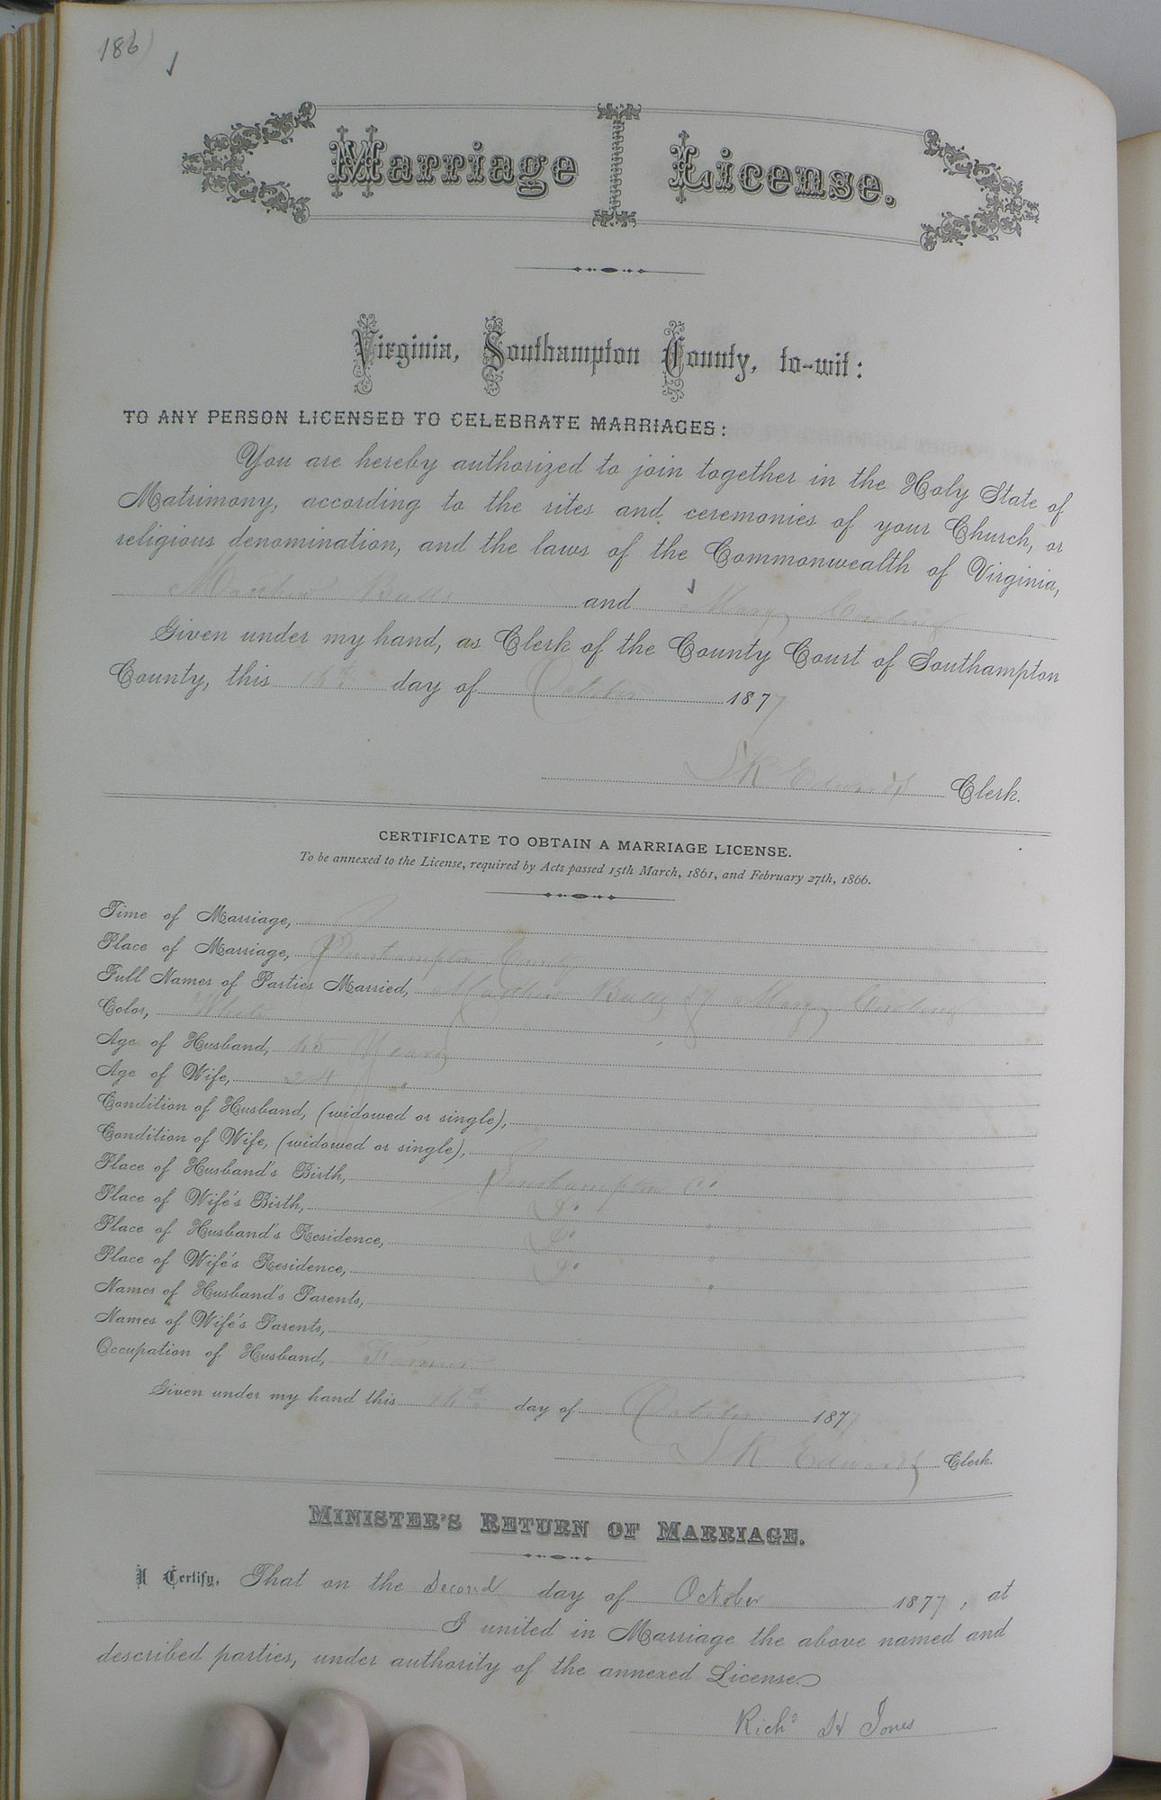 186
Marriage License.
Virginia, Southampton County, to-wit:
TO ANY PERSON LICENSED TO CELEBRATE MARRIAGES:
You are hereby authorized to join together in the Holy State of
Matrimony, according to the rites and ceremonies of your Church, or
religious denomination, and the laws of the Commonwealth of Virginia,
and Mary
Given under my hand, as Clerk of the County Court of Southampton
County, this day of October 1877
S K Edwards Clerk.
CERTIFICATE TO OBTAIN A MARRIAGE LICENSE.
To be annexed to the License, required by Acts passed 15th March, 1861, and February 27th, 1866.
Time of Marriage,
Place of Marriage, Southampton County
Full Names of Parties Married, Mary
Color, White
Age of Husband, Years
Age of Wife, 24 "
Condition of Husband, (widowed or single),
Condition of Wife, (widowed or single),
Place of Husband's Birth, Southampton Co
Place of Wife's Birth, Do
Place of Husband's Residence, Do
Place of Wife's Residence, Do
Names of Husband's Parents,
Names of Wife's Parents,
Occupation of Husband, Farmer
Given under my hand this day of October 1877
S K Edwards Clerk.
MINISTER'S RETURN OF MARRIAGE.
I Certify, That on the Second day of October 1877, at
I united in Marriage the above named and
described parties, under authority of the annexed License.
Richd H Jones